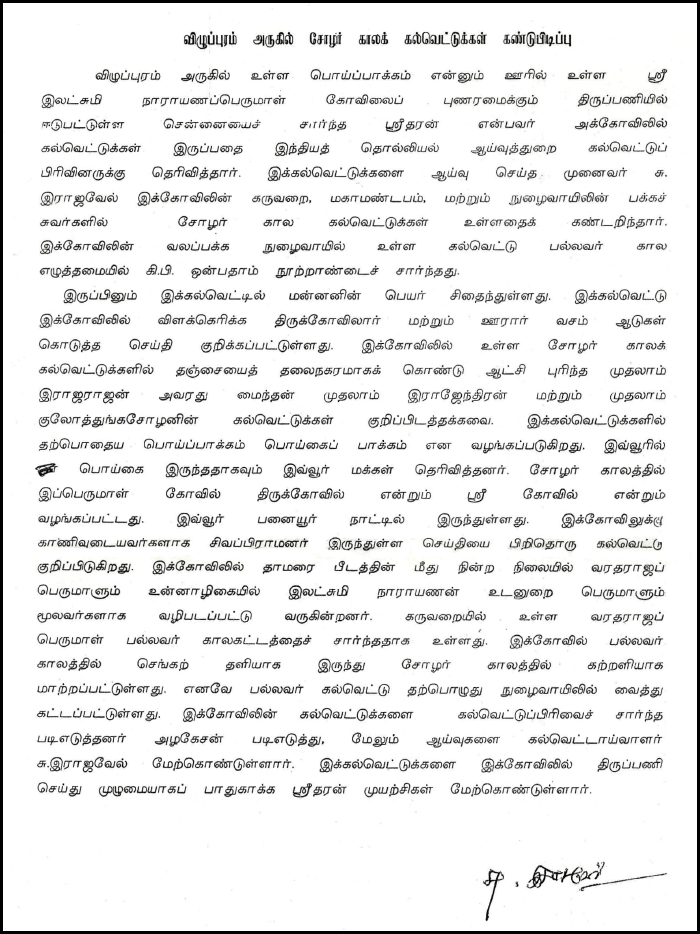 விழுப்புரம் அருகில் சோழர் காலக் கல்வெட்டுக்கள் கண்டுபிடிப்பு
விழுப்புரம் அருகில் உள்ள பொய்ப்பாக்கம் என்னும் ஊரில் உள்ள ஸ்ரீ
இலட்சுமி நாராயணப்பெருமாள் கோவிலைப் புணரமைக்கும் திருப்பணியில்
ஈடுபட்டுள்ள சென்னையைச் சார்ந்த ஸ்ரீதரன் என்பவர் அக்கோவிலில்
கல்வெட்டுக்கள் இருப்பதை இந்தியத் தொல்லியல் ஆய்வுத்துறை கல்வெட்டுப்
பிரிவினருக்கு தெரிவித்தார். இக்கல்வெட்டுக்களை ஆய்வு செய்த முனைவர் சு.
இராஜவேல் இக்கோவிலின் கருவறை, மகாமண்டபம், மற்றும் நுழைவாயிலின் பக்கச்
சுவர்களில் சோழர் கால கல்வெட்டுக்கள் உள்ளதைக் கண்டறிந்தார்.
இக்கோவிலின் வலப்பக்க நுழைவாயில் உள்ள கல்வெட்டு பல்லவர் கால
எழுத்தமையில் கி.பி. ஒன்பதாம் நூற்றாண்டைச் சார்ந்தது.
இருப்பினும் இக்கல்வெட்டில் மன்னனின் பெயர் சிதைந்துள்ளது. இக்கல்வெட்டு
இக்கோவிலில் விளக்கெரிக்க திருக்கோவிலார் மற்றும் ஊரார் வசம் ஆடுகள்
கொடுத்த செய்தி குறிக்கப்பட்டுள்ளது. இக்கோவிலில் உள்ள சோழர் காலக்
கல்வெட்டுக்களில் தஞ்சையைத் தலைநகரமாகக் கொண்டு ஆட்சி புரிந்த முதலாம்
இராஜராஜன் அவரது மைந்தன் முதலாம் இராஜேந்திரன் மற்றும் முதலாம்
குலோத்துங்கசோழனின் கல்வெட்டுக்கள் குறிப்பிடத்தக்கவை. இக்கல்வெட்டுக்களில்
தற்பொதைய பொய்ப்பாக்கம் பொய்கைப் பாக்கம் என வழங்கப்படுகிறது. இவ்வூரில்
பொய்கை இருந்ததாகவும் இவ்வூர் மக்கள் தெரிவித்தனர். சோழர் காலத்தில்
இப்பெருமாள் கோவில் திருக்கோவில் என்றும் ஸ்ரீ கோவில் என்றும்
வழங்கப்பட்டது. இவ்வூர் பனையூர் நாட்டில் இருந்துள்ளது. இக்கோவிலுக்கு
காணிவுடையவர்களாக சிவப்பிராமனர் இருந்துள்ள செய்தியை பிறிதொரு கல்வெட்டு
குறிப்பிடுகிறது. இக்கோவிலில் தாமரை பீடத்தின் மீது நின்ற நிலையில் வரதராஜப்
பெருமாளும் உன்னாழிகையில் இலட்சுமி நாராயணன் உடனுறை பெருமாளும்
மூலவர்களாக வழிபடப்பட்டு வருகின்றனர். கருவறையில் உள்ள வரதராஜப்
பெருமாள் பல்லவர் காலகட்டத்தைச் சார்ந்ததாக உள்ளது. இக்கோவில் பல்லவர்
காலத்தில் செங்கற் தளியாக இருந்து சோழர் காலத்தில் கற்றளியாக
மாற்றப்பட்டுள்ளது. எனவே பல்லவர் கல்வெட்டு தற்பொழுது நுழைவாயிலில் வைத்து
கட்டப்பட்டுள்ளது. இக்கோவிலின் கல்வெட்டுக்களை கல்வெட்டுப்பிரிவைச் சார்ந்த
படிஎடுத்தனர் அழகேசன் படிஎடுத்து, மேலும் ஆய்வுகளை கல்வெட்டாய்வாளர்
சு.இராஜவேல் மேற்கொண்டுள்ளார். இக்கல்வெட்டுக்களை இக்கோவிலில் திருப்பணி
செய்து முழுமையாகப் பாதுகாக்க ஸ்ரீதரன் முயற்சிகள் மேற்கொண்டுள்ளார்.